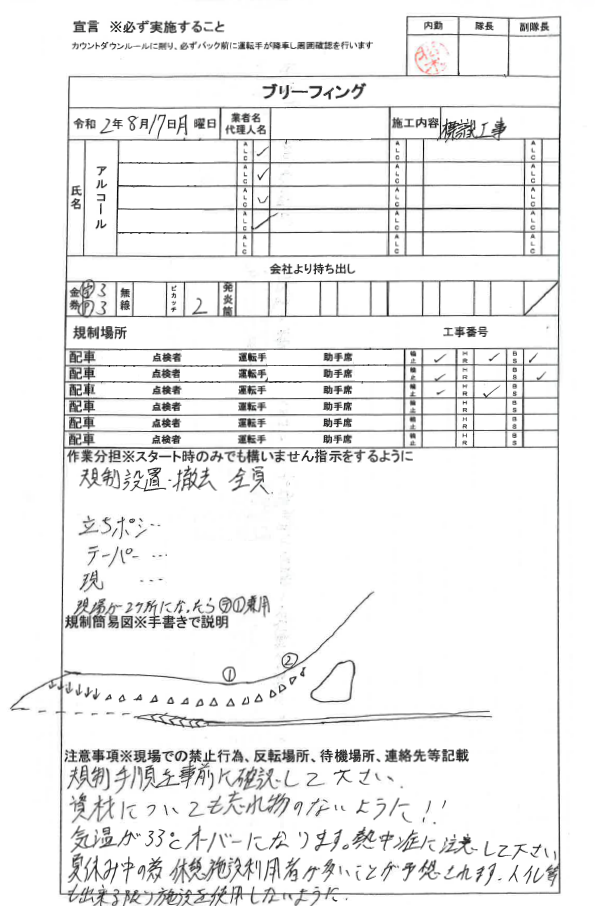 宣言 ※必ず実施すること
カウントダウンルールに則り、必ずバック前に運転手が降車し周囲確認を行います
内勤 隊長 副隊長
ブリーフィング
令和 2年8月17日月曜日 業者名 代理人名 施工内容 標識工事
氏名 アルコール
ALC ✓ ALC ALC
ALC ✓ ALC ALC
ALC ✓ ALC ALC
ALC ✓ ALC ALC
ALC ALC ALC
会社より持ち出し
金券 3 3 無線 ピカッチ 2 発炎筒
規制場所 工事番号
配車 点検者 運転手 助手席 輪止 ✓ HR ✓ BS ✓
配車 点検者 運転手 助手席 輪止 ✓ HR BS ✓
配車 点検者 運転手 助手席 輪止 ✓ HR ✓ BS
配車 点検者 運転手 助手席 輪止 HR BS
配車 点検者 運転手 助手席 輪止 HR BS
配車 点検者 運転手 助手席 輪止 HR BS
作業分担※スタート時のみでも構いません指示をするように
規制設置・撤去 全員
立ちポジ…
テーパー…
現 …
現場が2ヶ所になったら ① 兼用
規制簡易図※手書きで説明
① ②
注意事項※現場での禁止行為、反転場所、待機場所、連絡先等記載
規制手順を事前に確認して下さい。
資材についても忘れ物のないように!!
気温が33℃オーバーになります。熱中症に注意して下さい
夏休み中の為 休憩施設利用者が多いことが予想されます。トイレ等
も出来る限り施設を使用しないように。